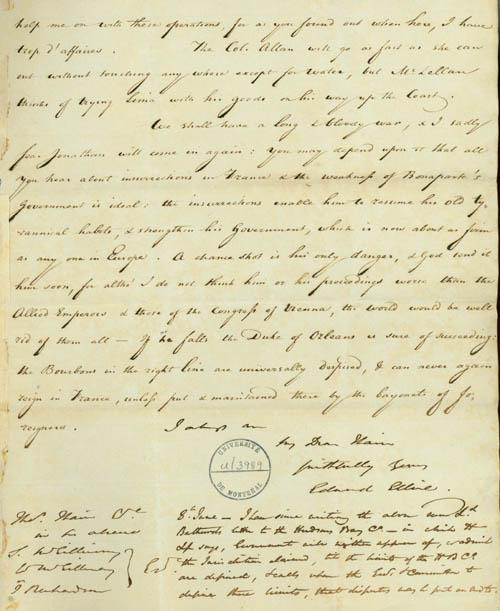 help me on with these operations, for as you found out when here, I have
trop d'affaires. The Col. Allan will go as fast as she can
out without touching any where except for Water, but McLellan
thinks of trying Lima with his goods on his way up the Coast.
We shall have a long & bloody war, & I sadly
fear Jonathan will come in again: You may depend upon it that all
you hear about insurrections in France & the weakness of Bonaparte's
Government is ideal: the insurrections enable him to resume his old ty-
rannical habits, & strengthen his Government, which is now about as firm
as any one in Europe. A chance shot is his only danger, & God send it
him soon, for altho' I do not think him or his proceedings worse than the
Allied Emperors & those of the Congress of Vienna, the world would be well
rid of them all — If he falls the Duke of Orleans is sure of succeeding:
the Bourbons in the right line are universally despised, & can never again
reign in France, unless put & maintained there by the bayonets of fo-
reigners.
I always am
My Dear Thain
faithfully Yours
Edward Ellice
UNIVERSITÉ
A/3989
DE MONTRÉAL
Thos. Thain
in his absence
S. McGillivray
W McGillivray
J Richardson
Esq
8th June — I have since writing the above seen Ld
Bathursts letter to the Hudsons Bay Co — in which
Lp says, Government will neither approve of, or admit
the Jurisdiction claimed, till the limits of the H B Co
are defined, & calls upon the Govr. & Committee to
define those limits, that disputes may be put an end to